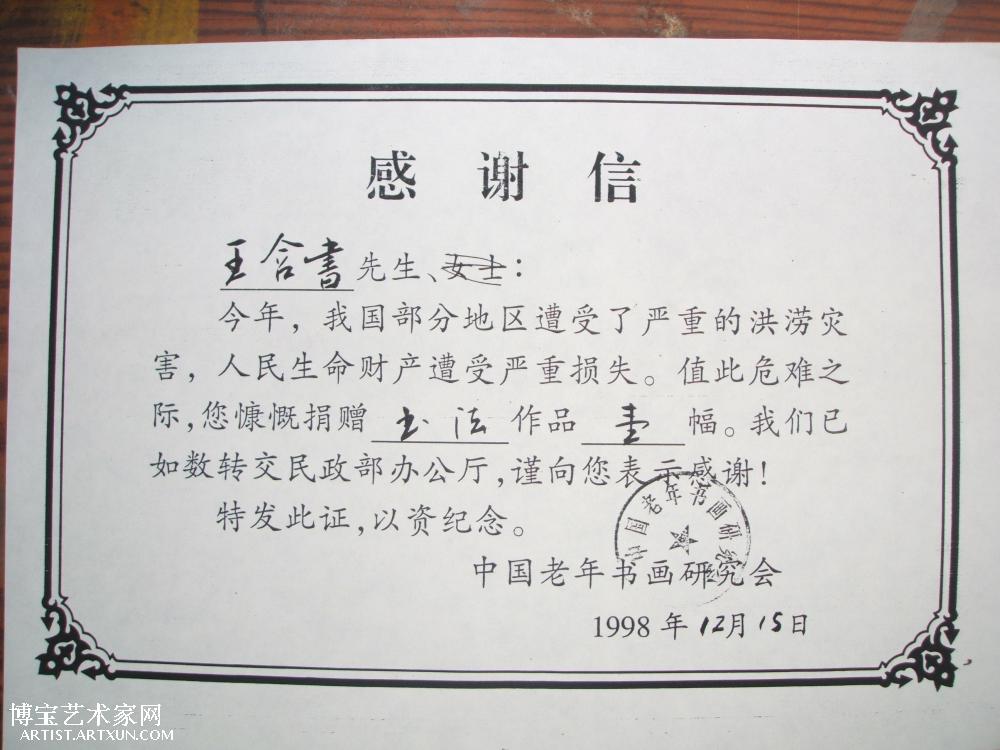 感谢信
王含书先生、女士：
今年，我国部分地区遭受了严重的洪涝灾
害，人民生命财产遭受严重损失。值此危难之
际，您慷慨捐赠书法作品壹幅。我们已
如数转交民政部办公厅，谨向您表示感谢！
特发此证，以资纪念。
中国老年书画研究会
中国老年书画研究会
1998年12月15日
博宝艺术家网
ARTIST.ARTXUN.COM